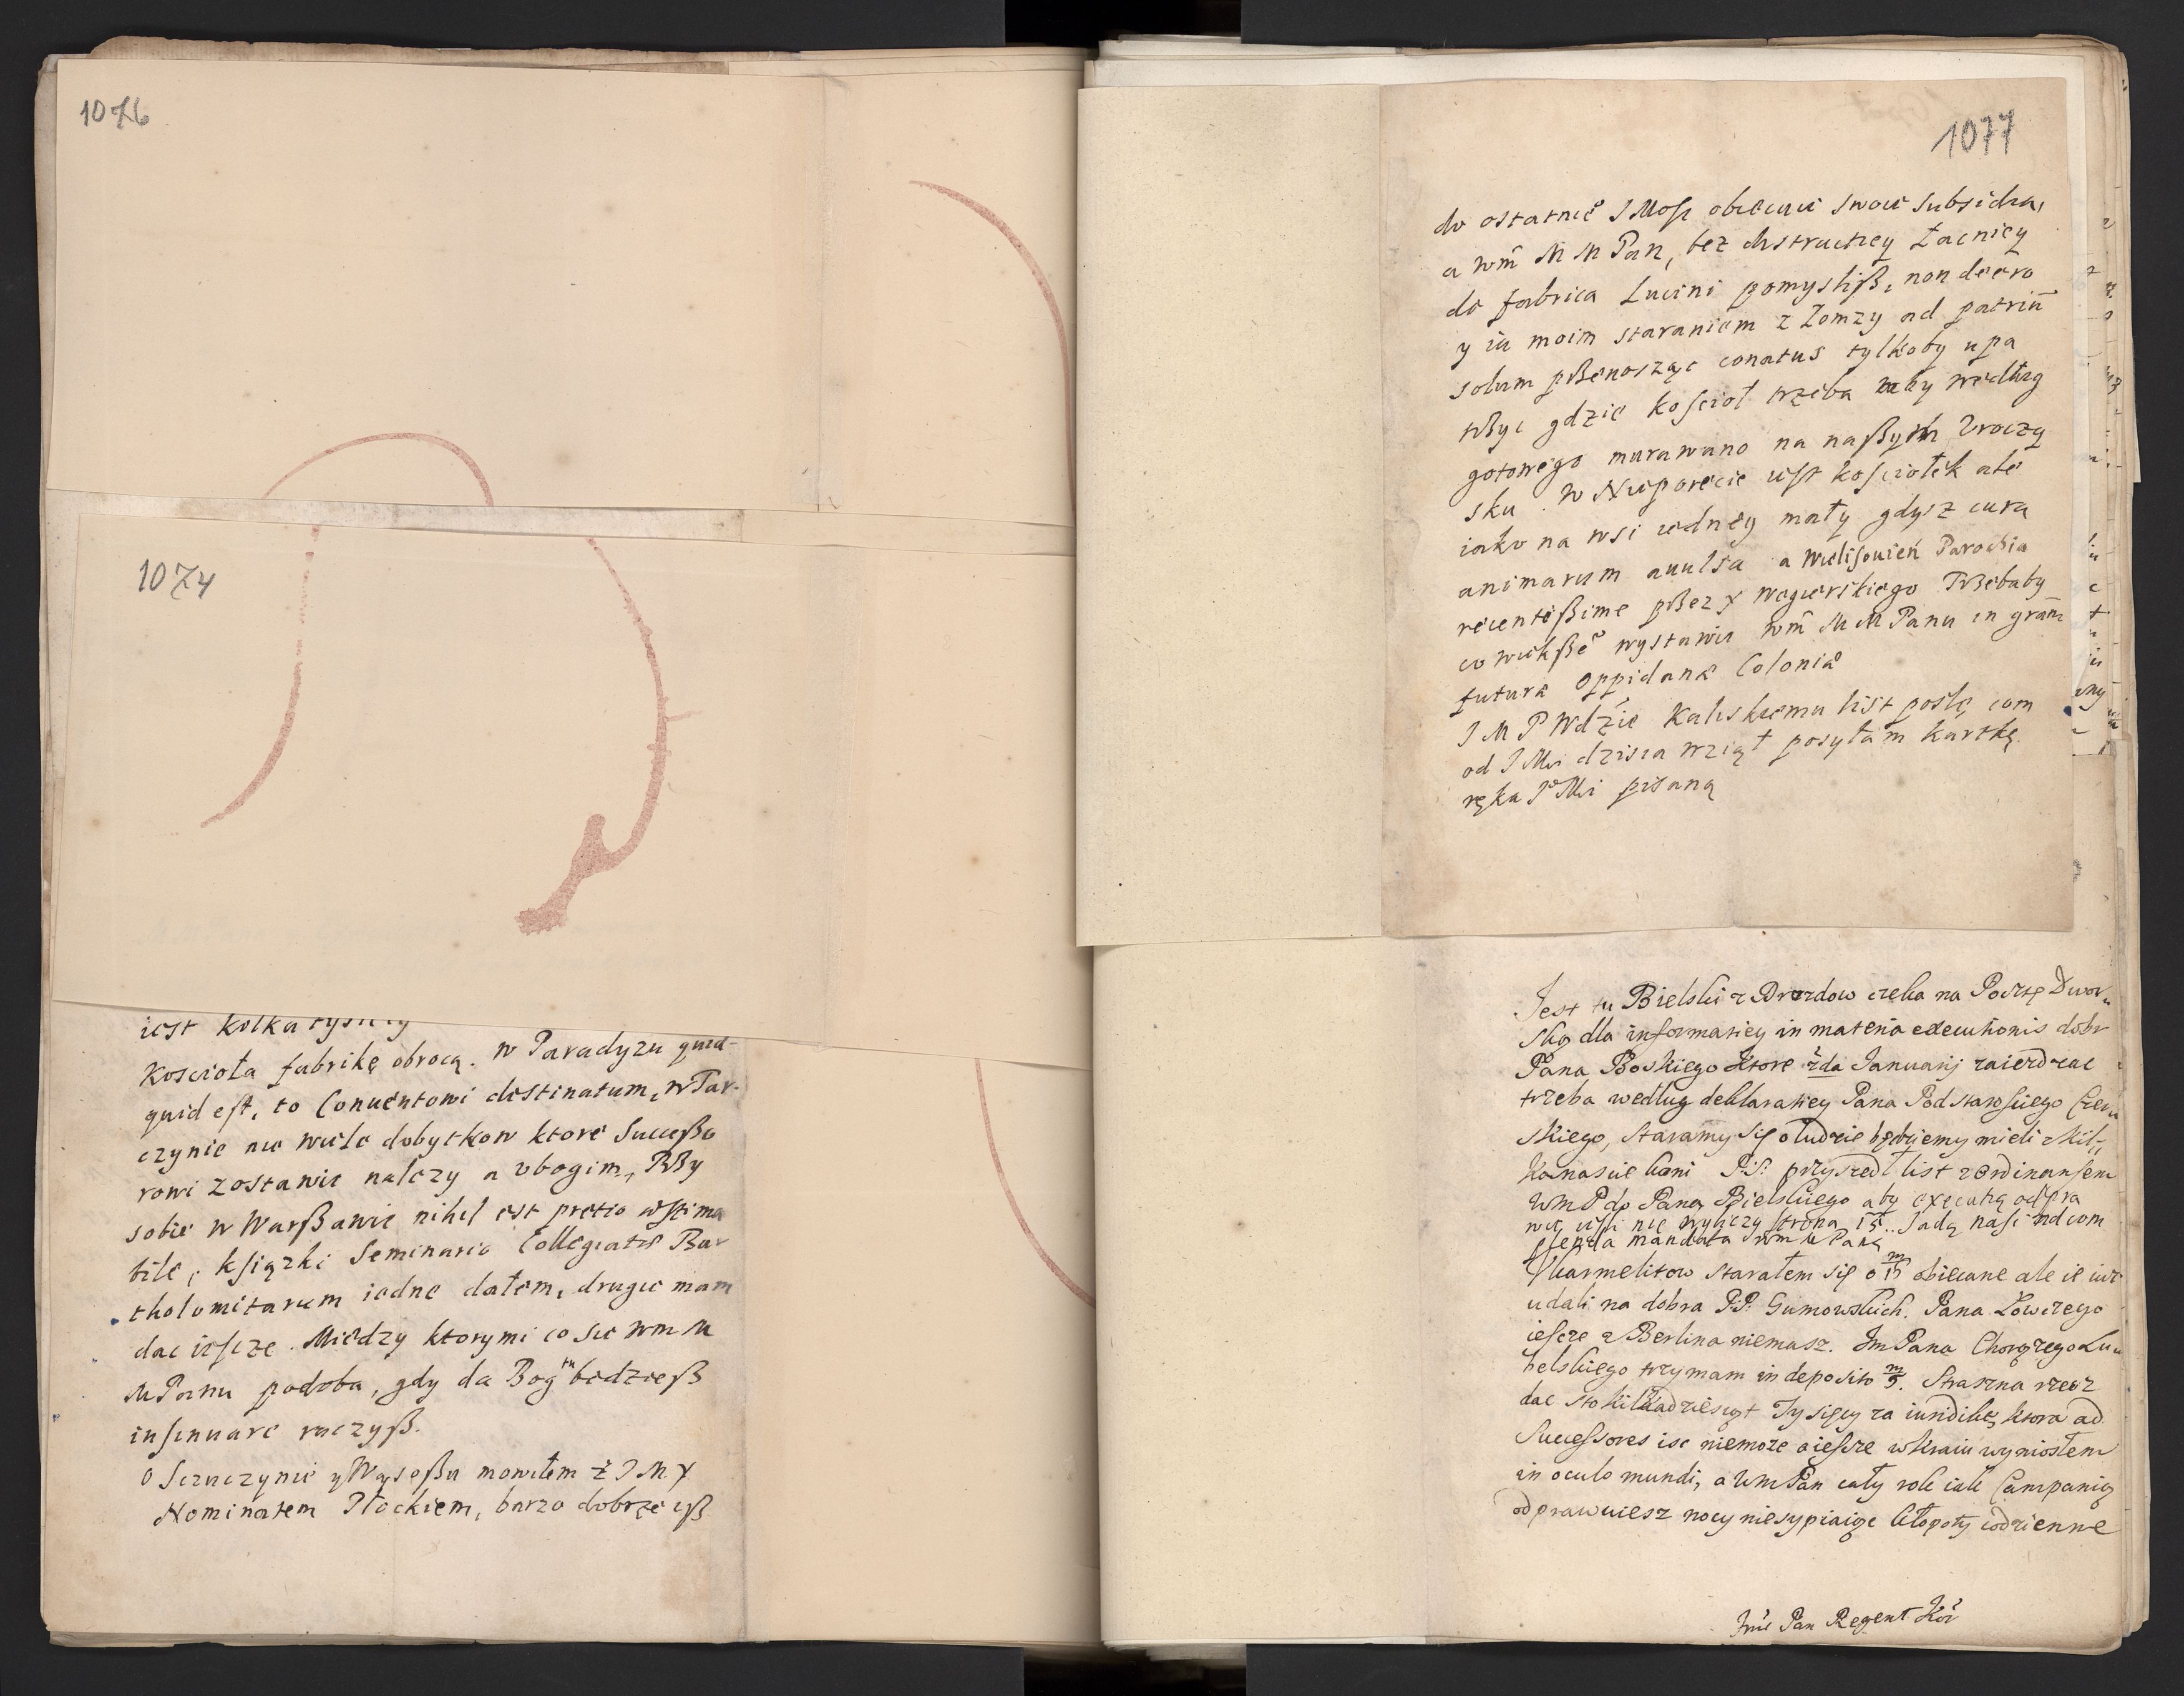 1076
1074
iest kolka tysięcy
Koscioła fabrikę obrocą. w Paradyzu quid-
quid est, to Conuentowi destinatum, w Tar-
czynie nie wiele dobytkow ktore Successo
rowi zostawic nalezy a vbogim, PRßy
sobie w Warßawie nihil est pretio æstima
bile, ksiązki Seminario Collegiatæ Bar
tholomitarum iedne dałem, drugie mam
dac ieszcze. Miedzy ktorymi co sie wm M
M Panu podoba, gdy da Bog tu bedzieß
insinuare raczyß.
o Serączynie y Wąsoßu mowiłem z J M X
Nominatem Płockiem, barzo dobrze iß
1077
do ostatnie J Mosc obiecuie swoie subsidia,
a wm̃ M M Pan, bez distractiey łacniey
do fabrica Lucini pomysliß, non deero
y ia moim staraniem z Łomzy ad patriũ
solum pßenosząc conatus tylkoby upa
tßyc gdzie koscioł trzeba by według
gotowego murawano na naßym Vroczy
sku. w Nieporecie iest kosciołek ale
iako na wsi iedney mały gdysz cura
animarum auulsa a Wieliszewien Parochia
recentißime pßez X Wegierskiego Tßebaby
co wiekße wystawic wm̃ M M Panu in grãm
futuræ oppidanæ Coloniæ
J M P Wdzie Kaliskiemu list poslę com
od J Mci dzisia wziął posyłam kartkę
ręka J Mci pisaną
Jest tu Bielski z Drozdow czeka na Pocztę Dwor
ską dla informatiey in materia executionis dobr
Pana Boskiego ktore 2da Januarij zaierdzac
trzeba według deklaratiey Pana Podstarosciego Czer
skiego, staramy się o ludzie będziemy mieli z kil
kanascie koni P.S. przyszedł list z ordinansem
Wm P do Pana Bielskiego aby executią odpra
wic iesli nie wyliczy strona 15. Jadą nasi ad com
plenda mandata wm M Pana
V karmelitow starałem się o 15 obiecane ale ie iuz
udali na dobra P.P. Gumowskich. Pana Łowczego
iescze z Berlina niemasz. Jm Pana Chorązego Lu
belskiego trzymam in deposito 5. Straszna rzecz
dac sto kilkadziesiąt Tysięcy za iuridikę ktora ad
Successores isc niemoze a iescze w kraiu wyniosłem
in oculo mundi, a Wm Pan cały rok iak Campanią
odprawuiesz nocy niesypiaiąc kłopoty codzienne
Jmć Pan Regent Kor